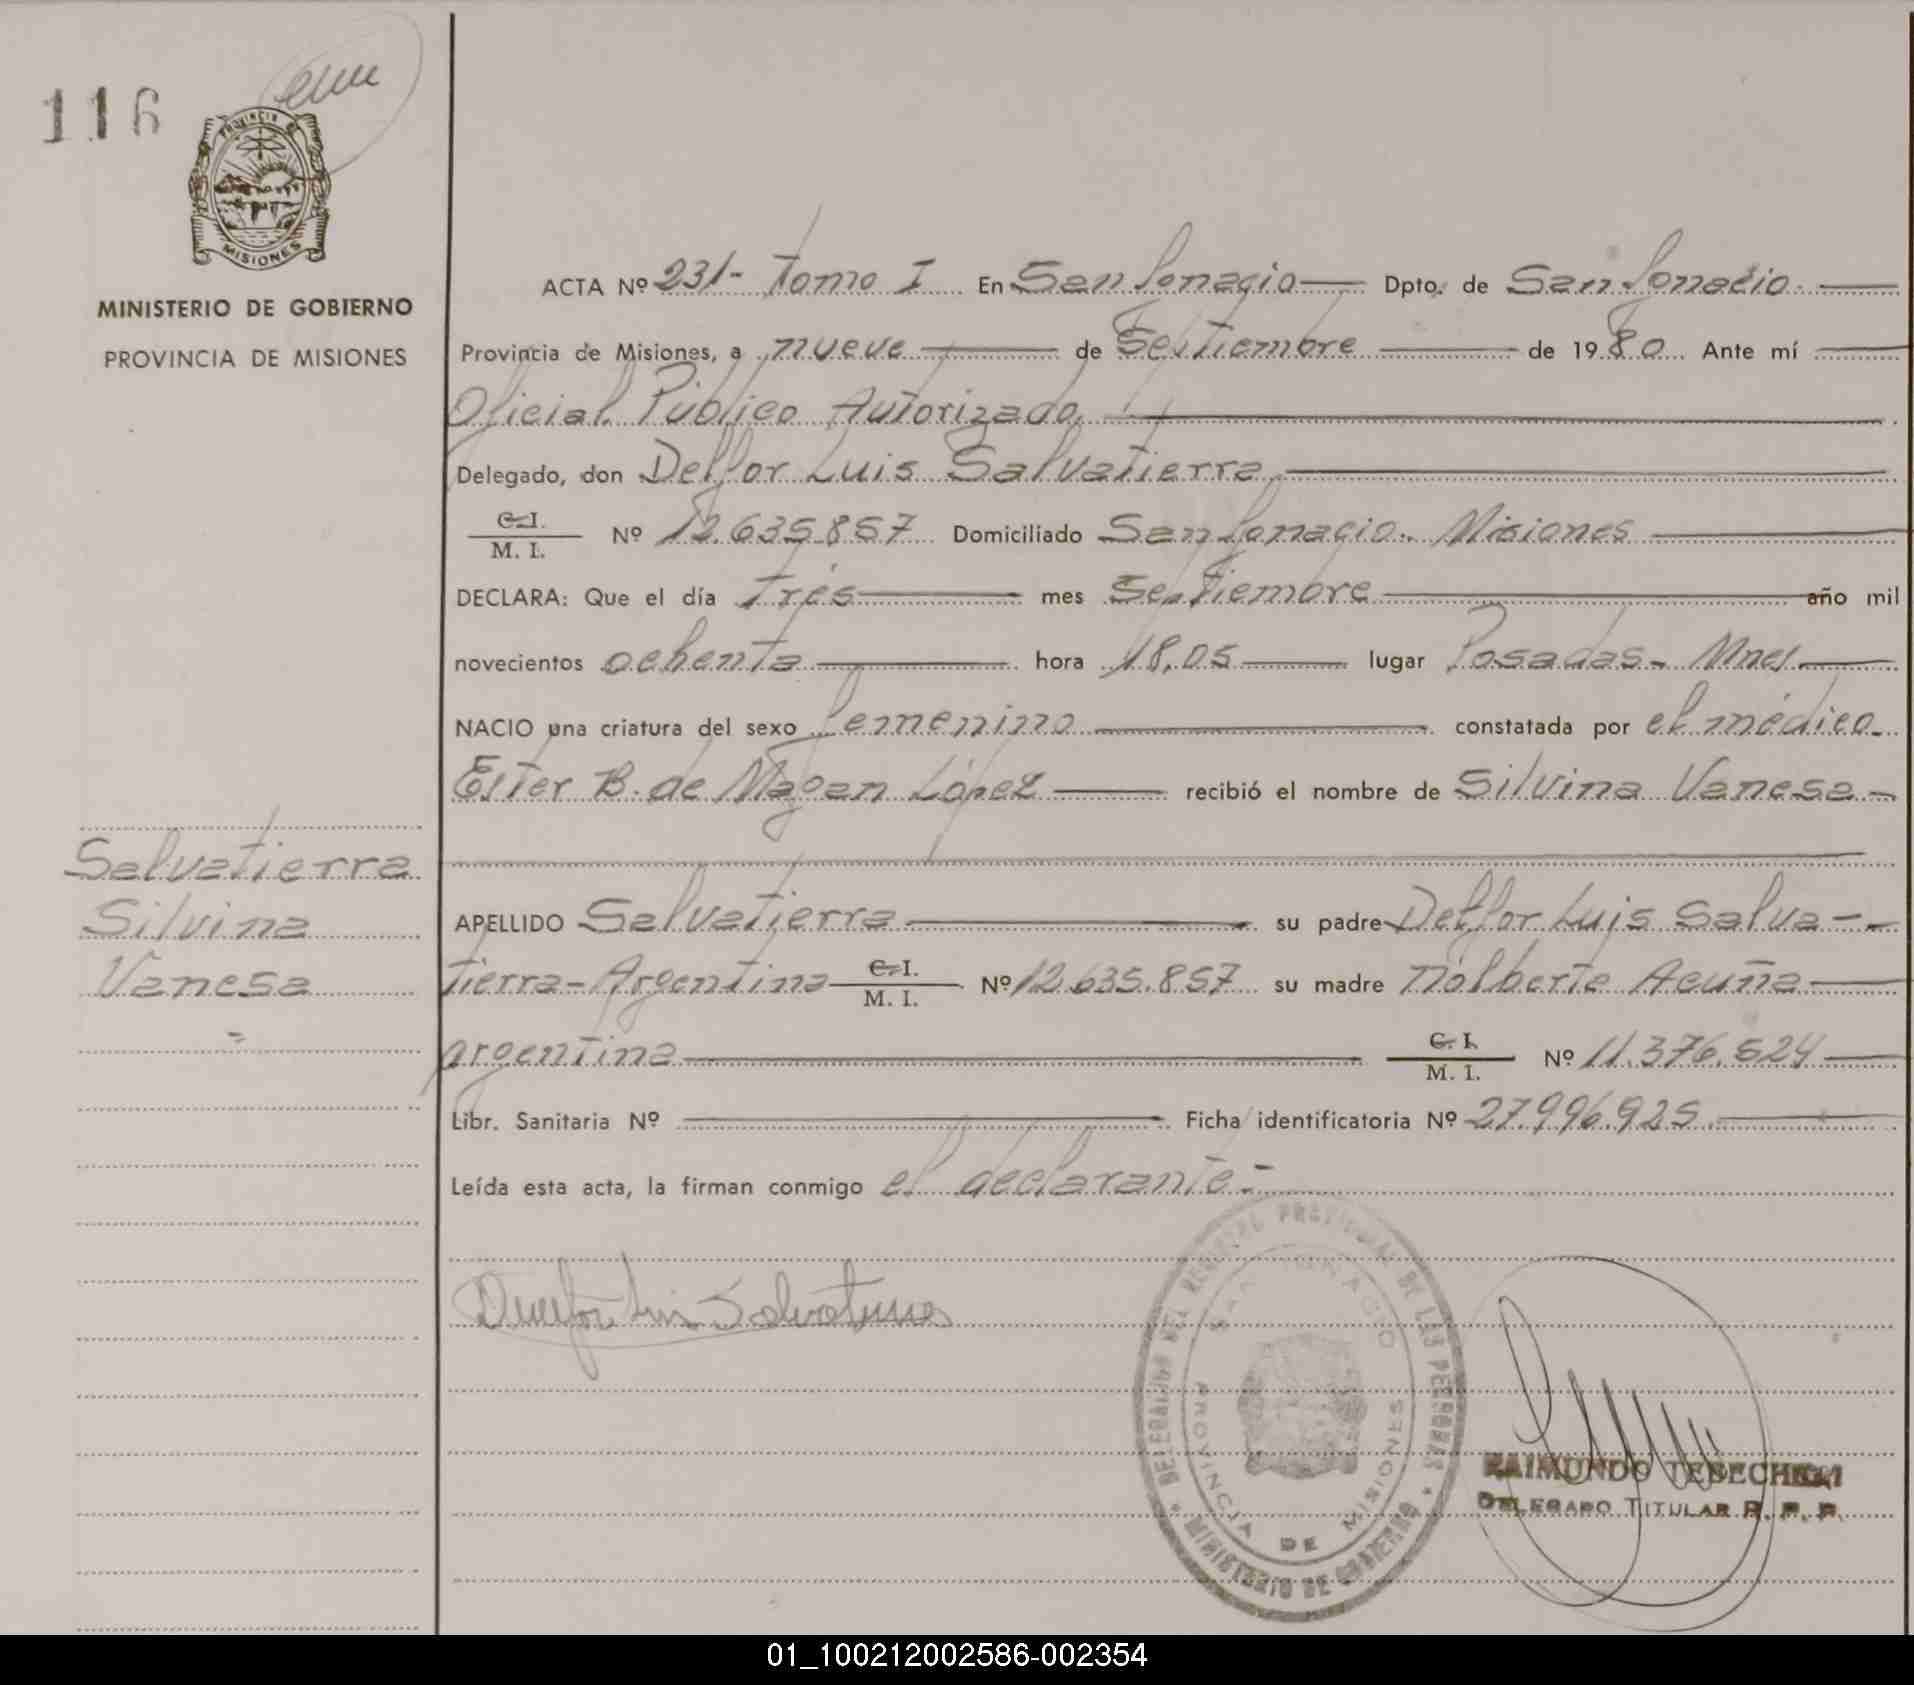 116
PROVINCIA DE
MISIONES
MINISTERIO DE GOBIERNO
PROVINCIA DE MISIONES
ACTA Nº 231- Tomo I En San Ignacio Dpto. de San Ignacio
Provincia de Misiones, a nueve de Septiembre de 1980 Ante mí
Oficial Público Autorizado
Delegado, don Delfor Luis Salvatierra
C. I.
M. I. Nº 12.635.857 Domiciliado San Ignacio. Misiones
DECLARA: Que el día Tres mes Septiembre año mil
novecientos ochenta hora 18,05 lugar Posadas- Mnes
NACIO una criatura del sexo femenino constatada por el médico
Ester B. de Magan López recibió el nombre de Silvina Vanesa
Salvatierra
Silvina
Vanesa
APELLIDO Salvatierra su padre Delfor Luis Salva-
tierra-Argentino C. I. M. I. Nº 12.635.857 su madre Acuña
argentina C. I. M. I. Nº 11.376.524
Libr. Sanitaria Nº Ficha identificatoria Nº 27.996.925
Leída esta acta, la firman conmigo el declarante-
Luis Salvatierra
DELEGACION DEL REGISTRO PROVINCIAL DE LAS PERSONAS
SAN IGNACIO
PROVINCIA DE MISIONES
MINISTERIO DE GOBIERNO
RAIMUNDO
DELEGADO TITULAR R. P. P.
01_100212002586-002354